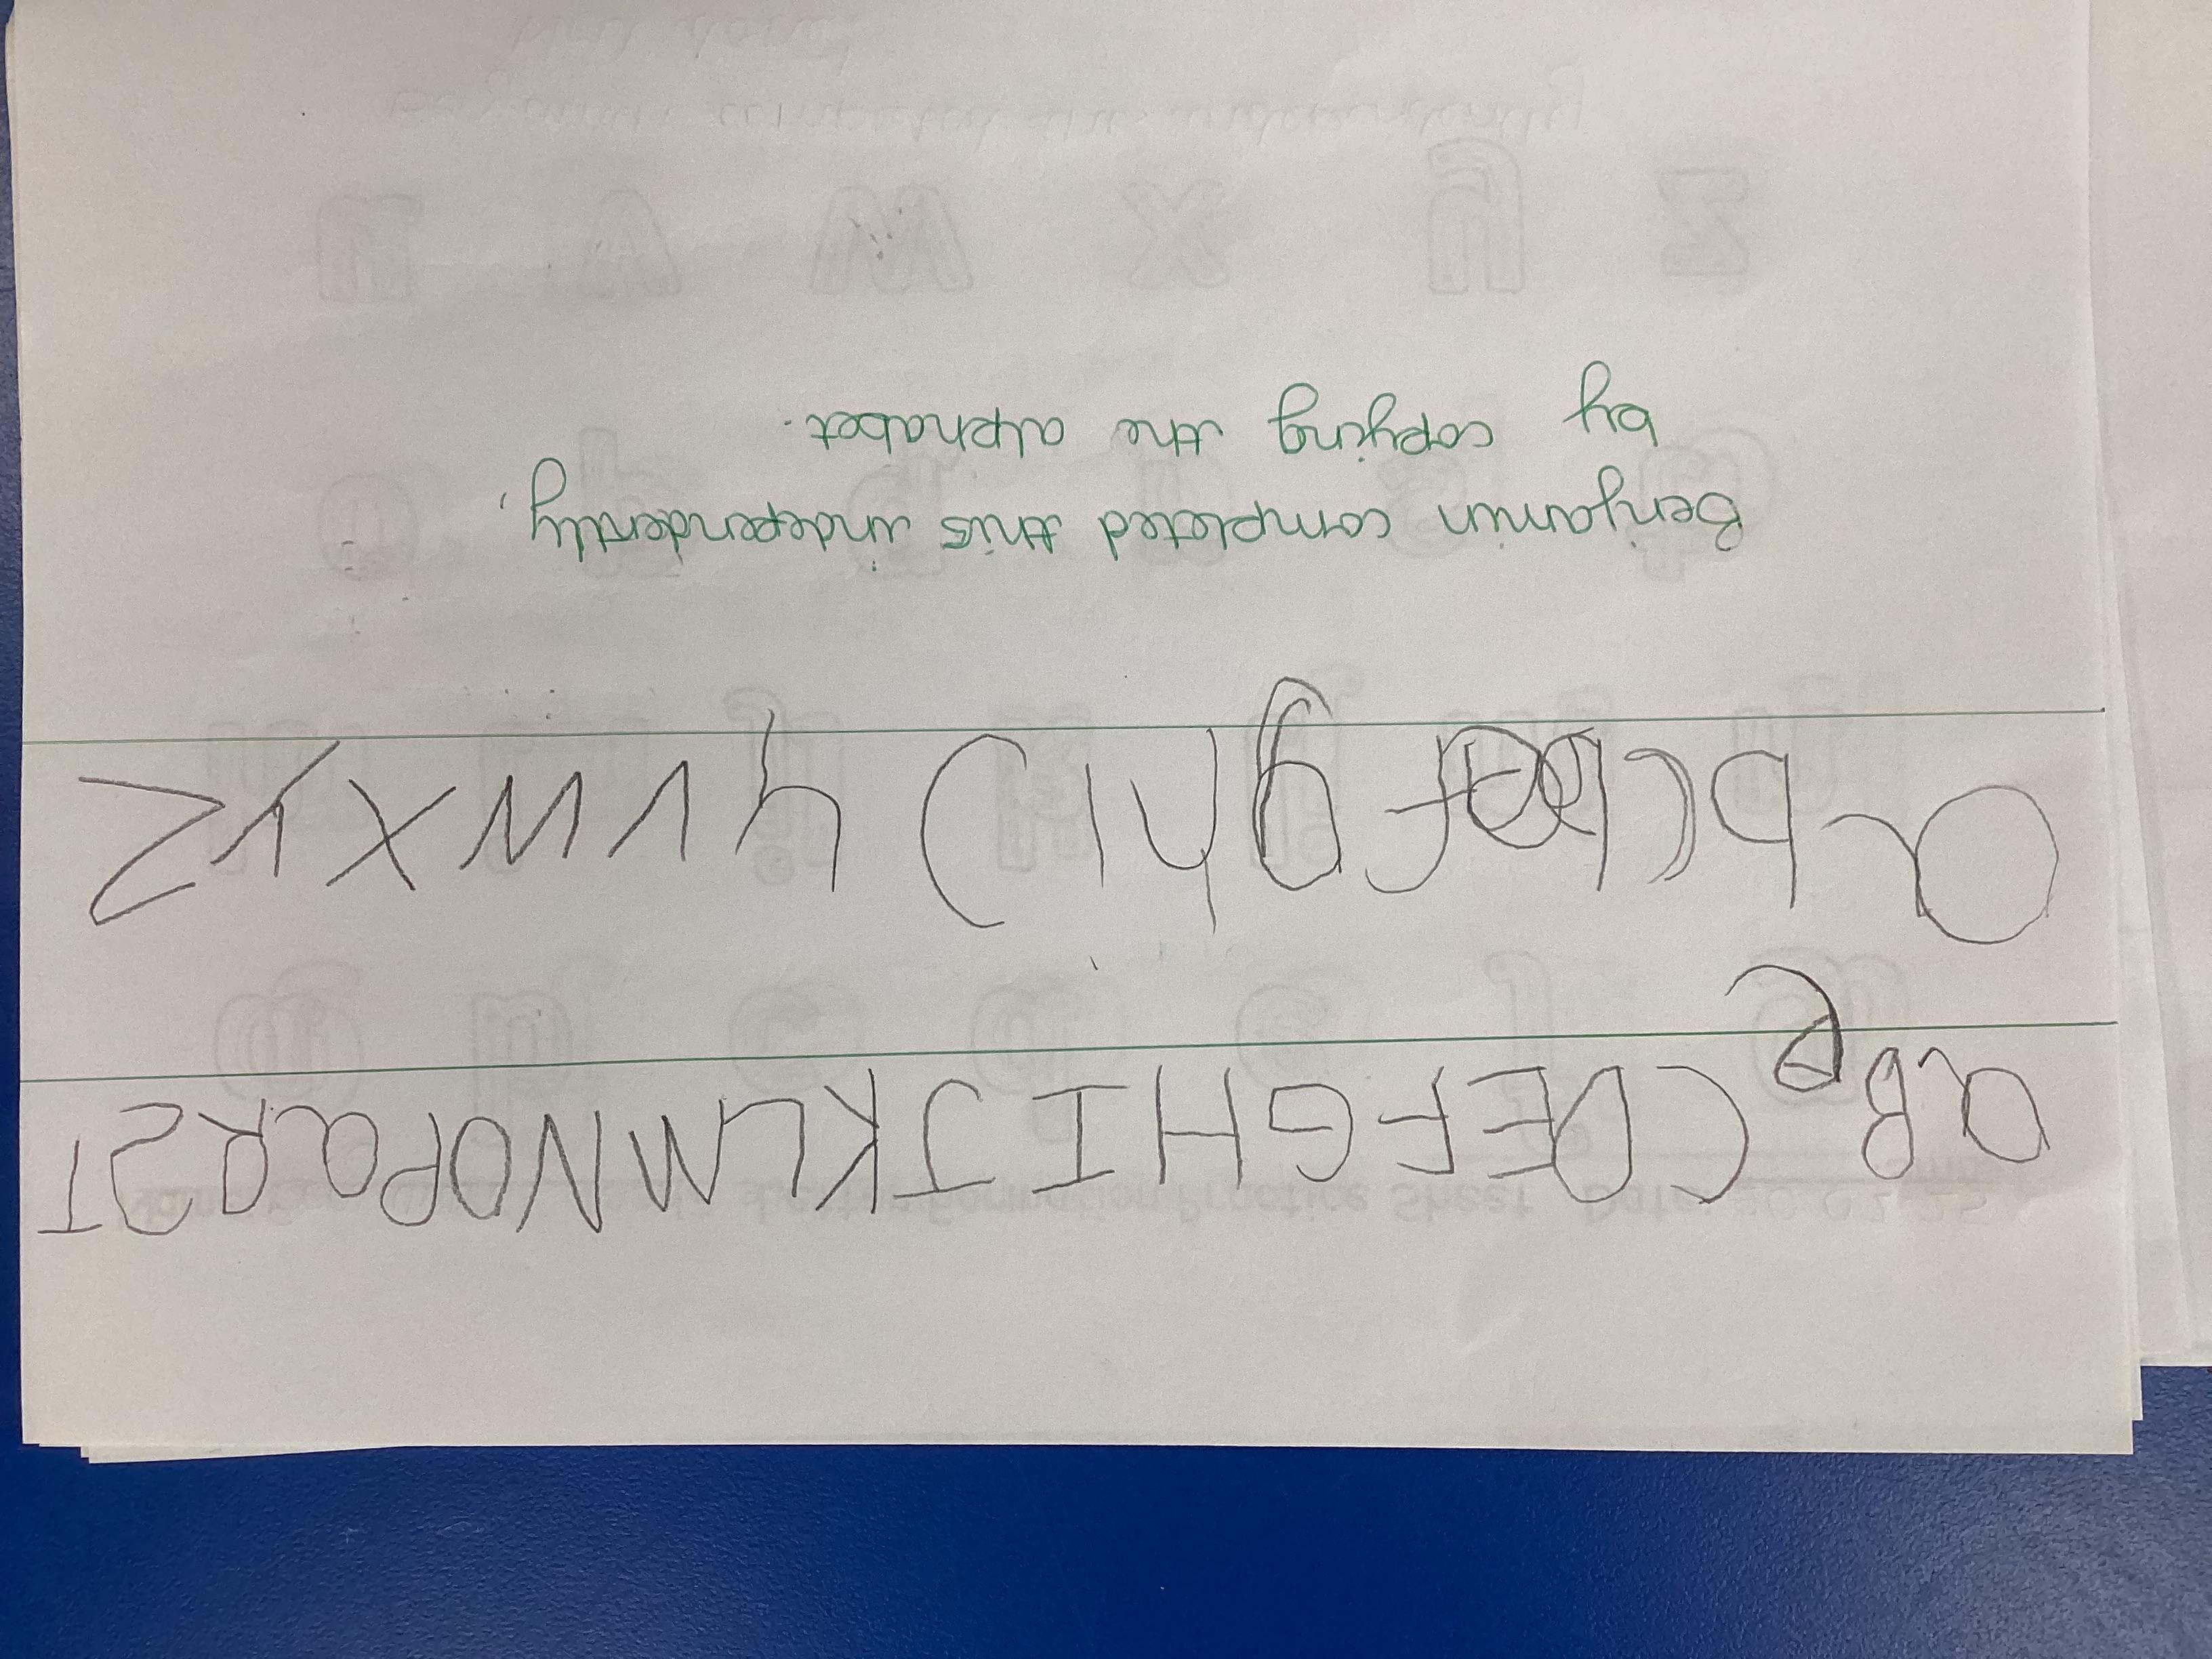 a B C D E F G H I J K L M N O P Q R S T
a b c d e f g h i j y v w x y z
Benjamin completed this independently,
by copying the alphabet.